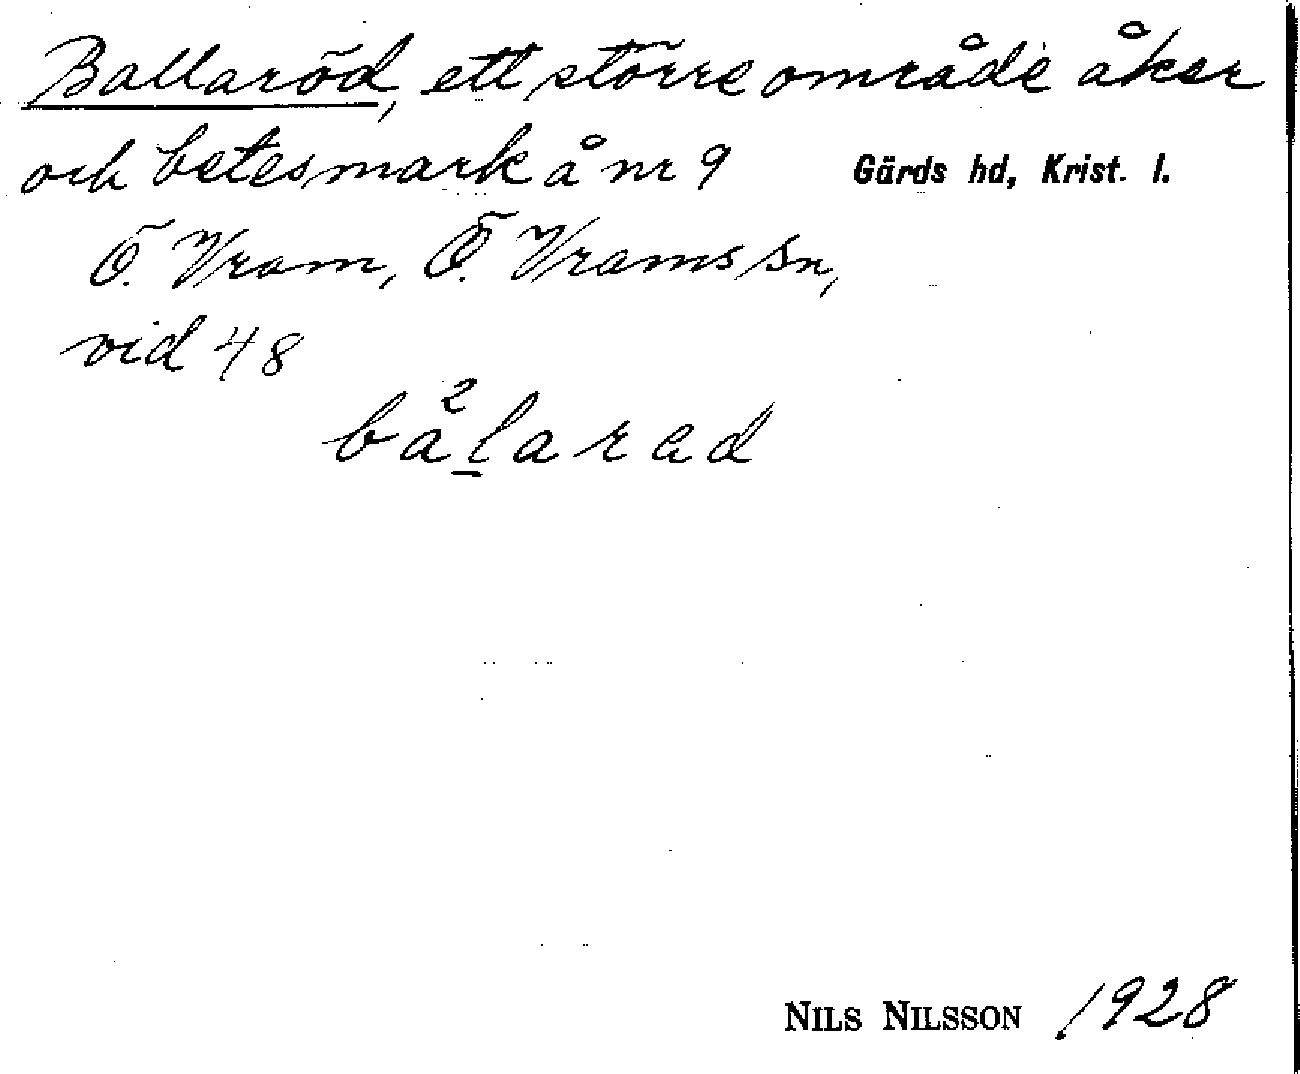 Ballaröd, ett större område åker
och betesmark å nr 9 Gärds hd, Krist. l.
Ö. Vram, Ö. Vrams sn,
vid 48
ba²larad
NILS NILSSON 1928